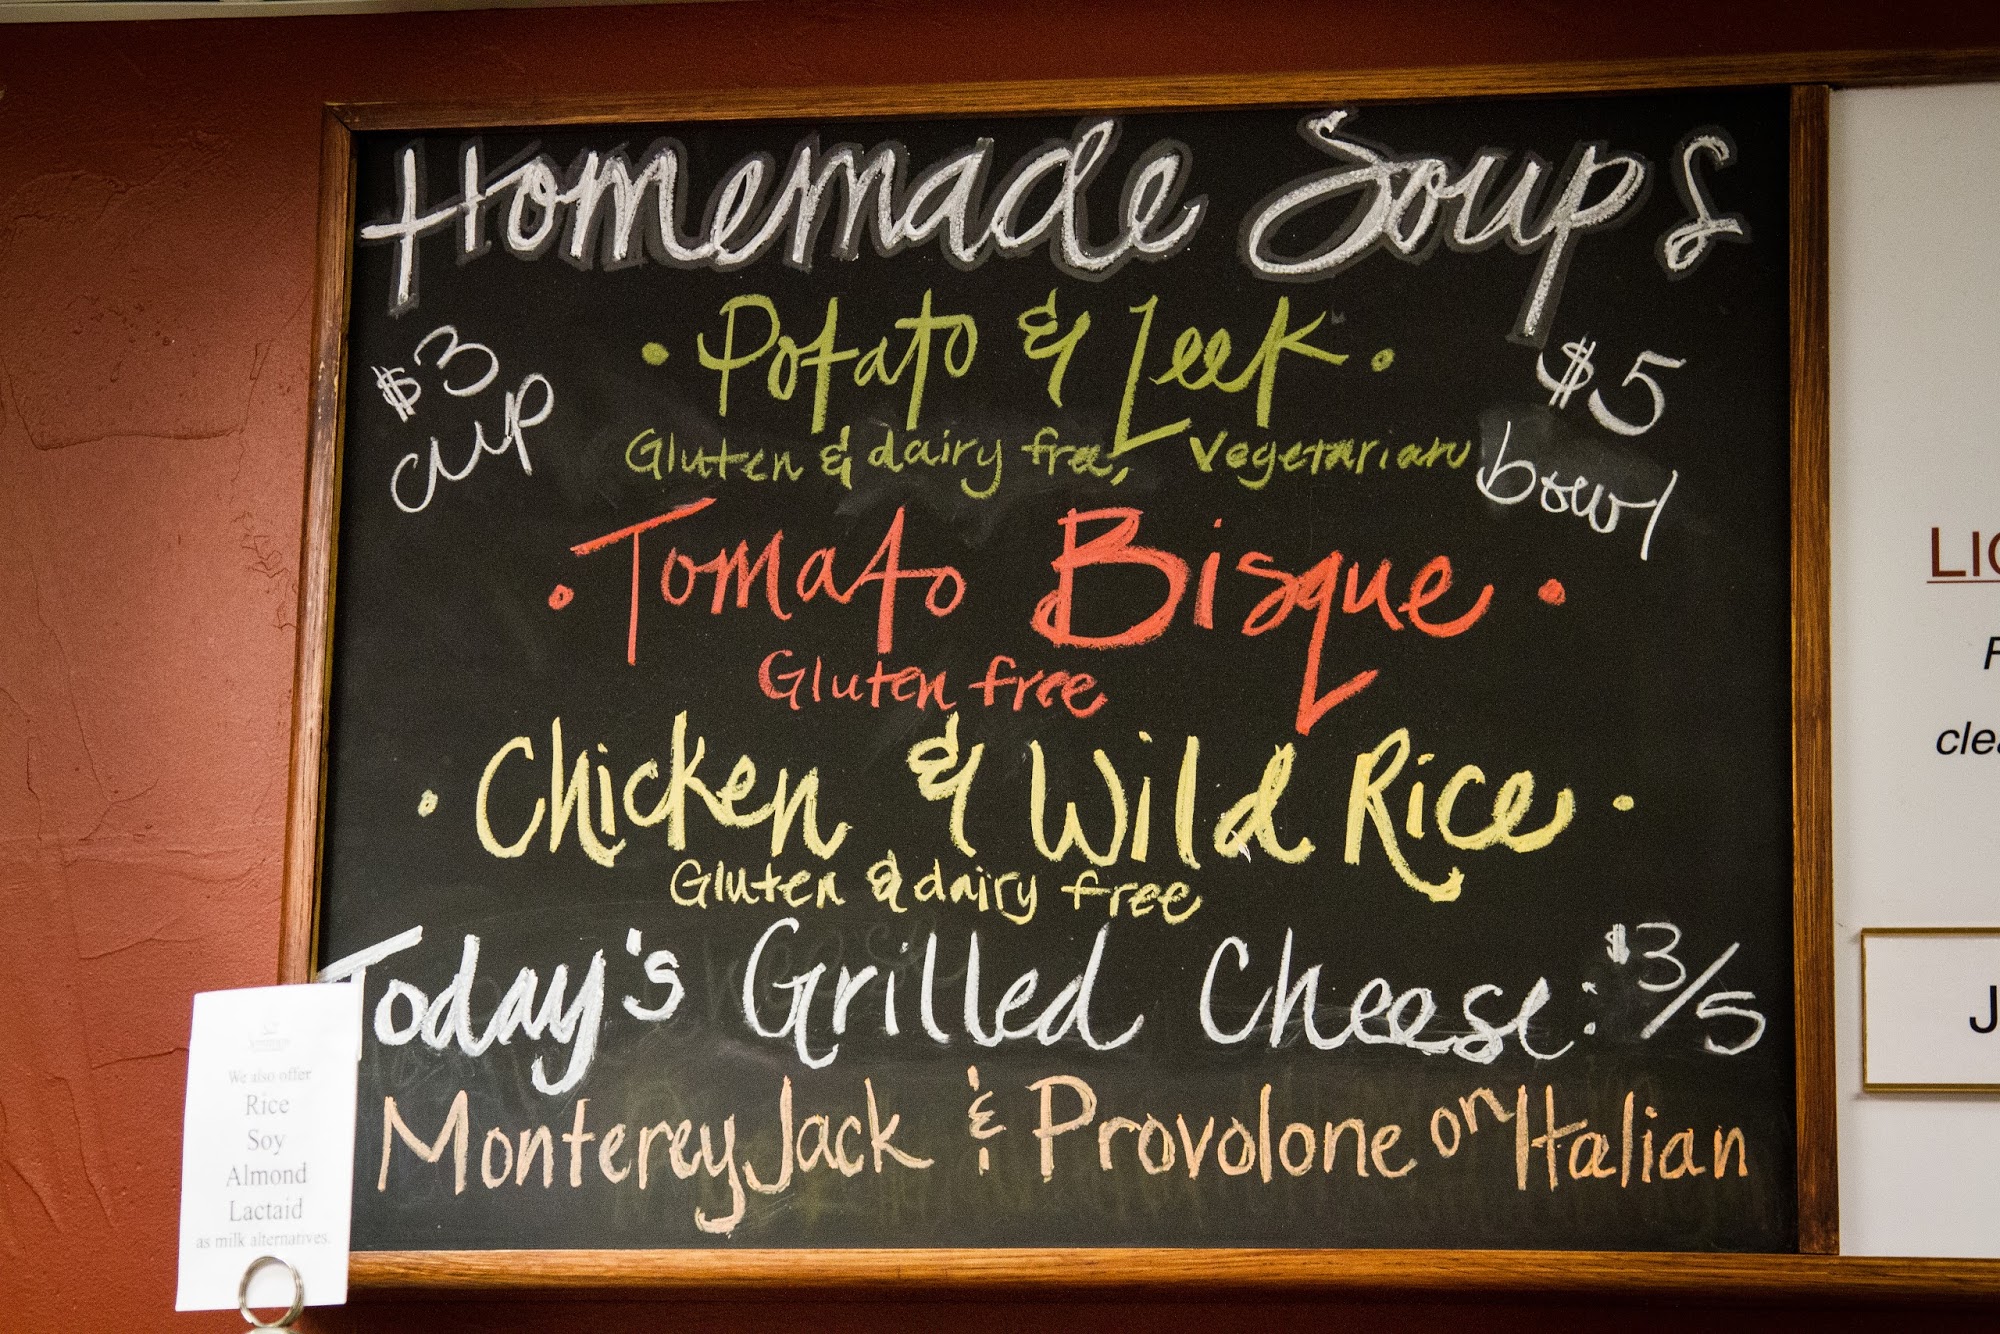 Homemade Soups
$3
cup
• Potato & Leek •
Gluten & dairy free, Vegetarian
$5
bowl
• Tomato Bisque •
Gluten free
• Chicken & Wild Rice •
Gluten & dairy free
Today's Grilled Cheese: $3/5
Monterey Jack & Provolone on Italian
We also offer
Rice
Soy
Almond
Lactaid
as milk alternatives.